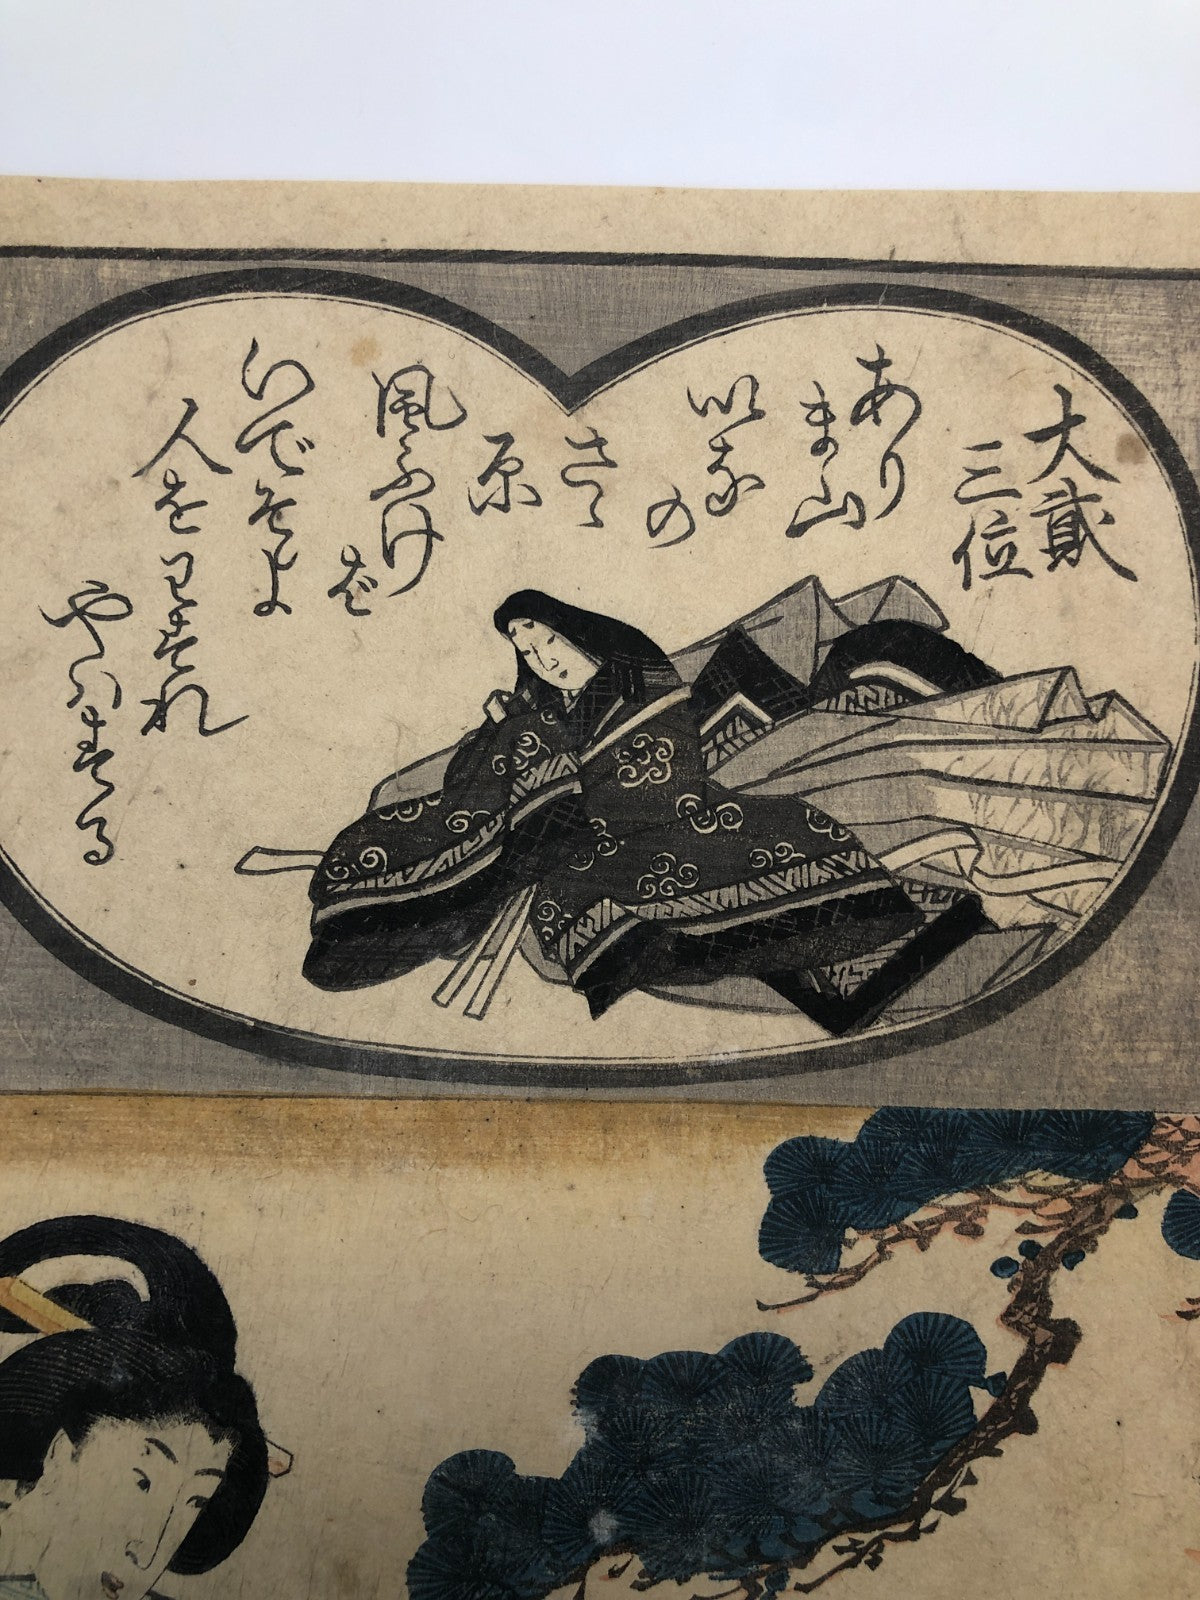 大貳
三位
あり
ま山
以な
の
さゝ
原
風ふけ
ば
いでそよ
人をわすれ
やはする